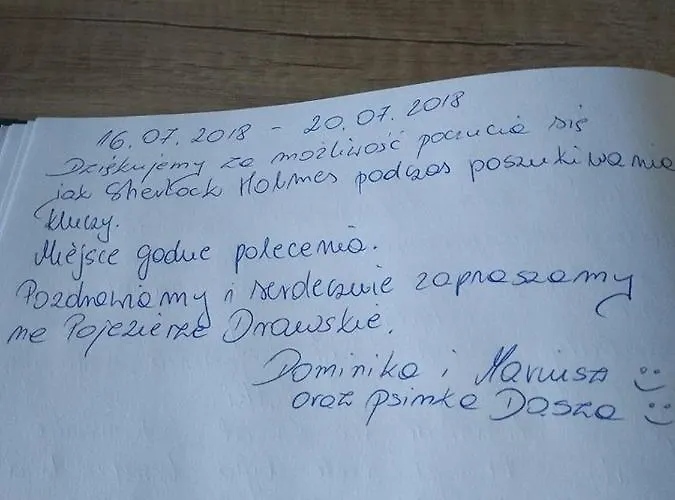 16.07.2018 - 20.07.2018
Dziękujemy za możliwość poczucia się
jak Sherlock Holmes podczas poszukiwania
kluczy.
Miejsce godne polecenia.
Pozdrawiamy i serdecznie zapraszamy
na Pojezierze Drawskie.
Dominika i Mariusz :)
oraz psinka Dasza :)